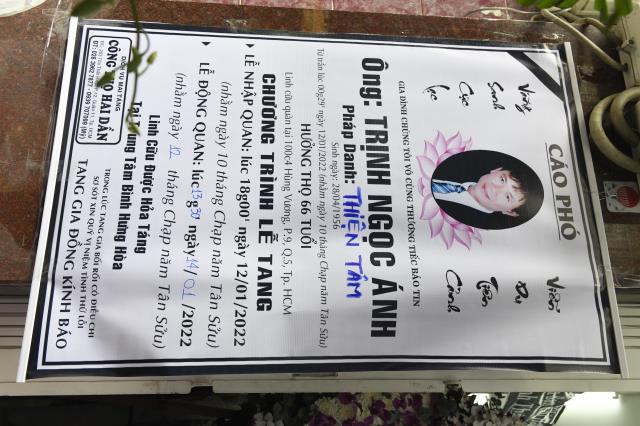 CÁO PHÓ
Vãng Sanh Cực Lạc
Viễn Du Tiên Cảnh
GIA ĐÌNH CHÚNG TÔI VÔ CÙNG THƯƠNG TIẾC BÁO TIN
Ông: TRỊNH NGỌC ÁNH
Pháp Danh: THIỆN TÂM
Sinh ngày: 28/04/1956
Từ trần lúc 00g29' ngày 12/01/2022 (nhằm ngày 10 tháng Chạp năm Tân Sửu)
HƯỞNG THỌ 66 TUỔI
Linh cữu quàn tại 100c4 Hùng Vương, P.9, Q.5, Tp. HCM
CHƯƠNG TRÌNH LỄ TANG
LỄ NHẬP QUAN: lúc 18g00' ngày 12/01/2022
(nhằm ngày 10 tháng Chạp năm Tân Sửu)
LỄ ĐỘNG QUAN: lúc 13g30 ngày 14/01/2022
(nhằm ngày 12 tháng Chạp năm Tân Sửu)
Linh Cữu Được Hỏa Táng
Tại Trung Tâm Bình Hưng Hòa
DỊCH VỤ MAI TÁNG
CÔNG THỌ HAI DẦN
TRONG LÚC TANG GIA BỐI RỐI CÓ ĐIỀU CHI
SƠ SÓT XIN QUÝ VỊ NIỆM TÌNH THỨ LỖI
TANG GIA ĐỒNG KÍNH BÁO